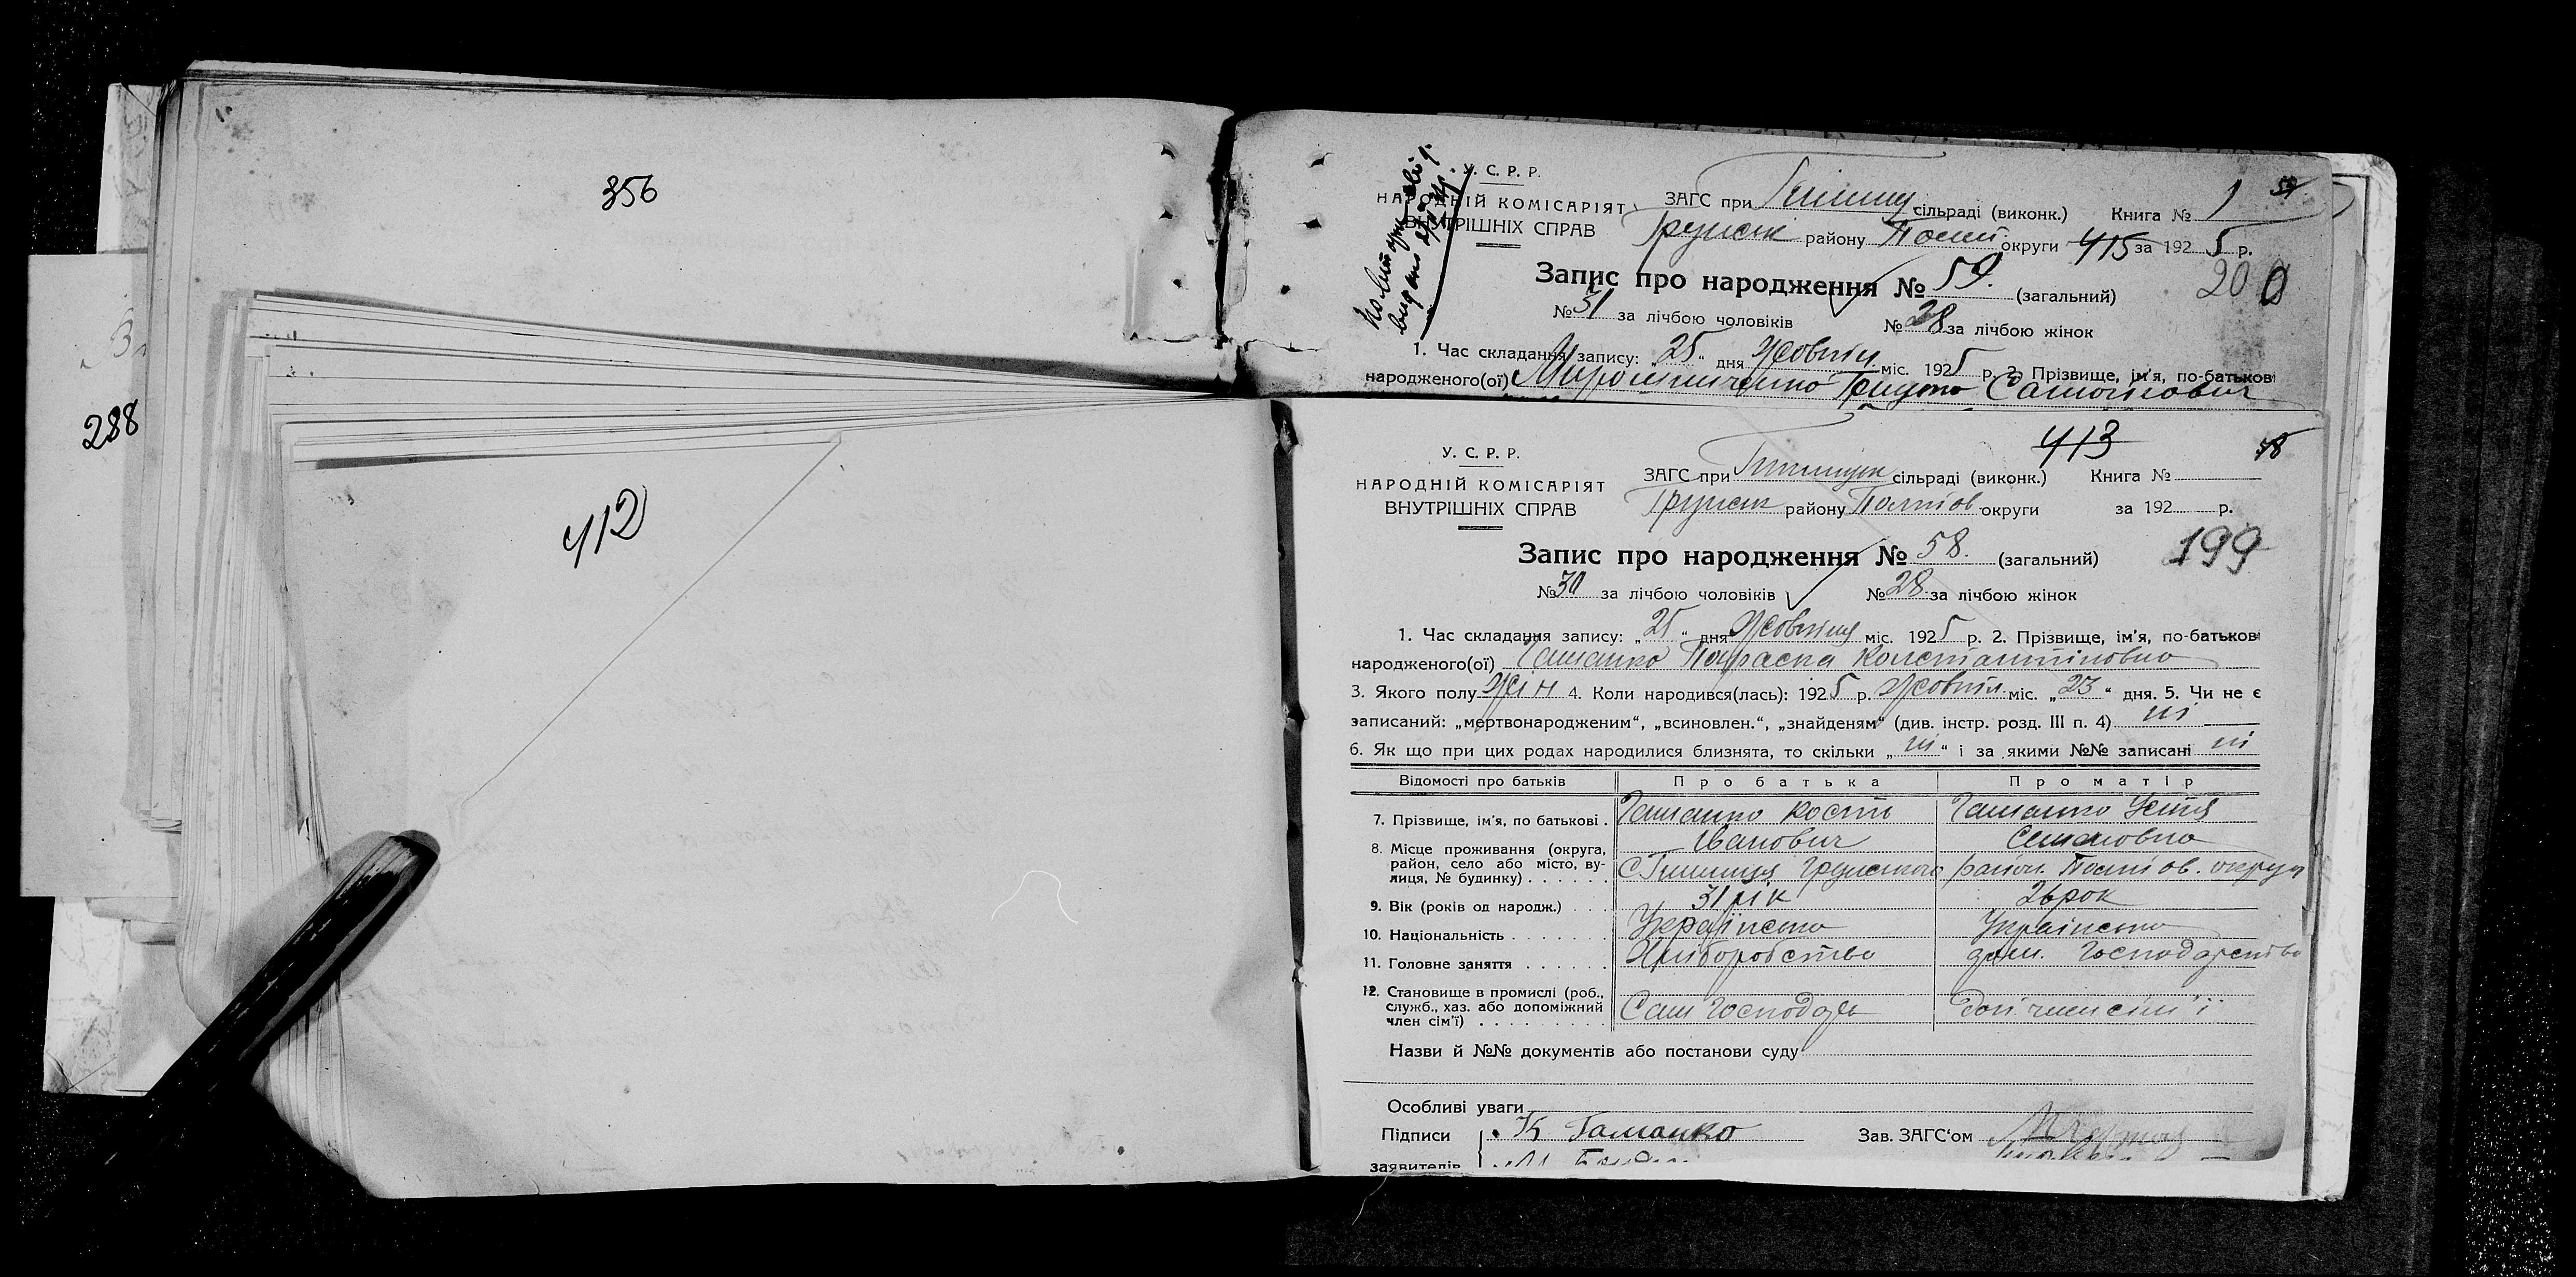 356
288
412
У. С. Р. Р.
НАРОДНІЙ КОМІСАРІЯТ
ВНУТРІШНІХ СПРАВ
ЗАГС при сільраді (виконк.) Книга № 1
Грунськ району Полт. округи 415 за 1925 р.
Запис про народження № 59. (загальний)
200
№ 31 за лічбою чоловіків № 28 за лічбою жінок
1. Час складання запису: „25“ дня Жовтня міс. 1925 р. 2. Прізвище, ім'я, по-батькові
народженого(ої) Мирошниченко Грицко Самойлович
413
58
У. С. Р. Р.
НАРОДНІЙ КОМІСАРІЯТ
ВНУТРІШНІХ СПРАВ
ЗАГС при сільраді (виконк.) Книга №
Грунськ району Полтов. округи за 192 р.
Запис про народження № 58. (загальний)
199
№ 30 за лічбою чоловіків № 28 за лічбою жінок
1. Час складання запису: „25“ дня Жовтня міс. 1925 р. 2. Прізвище, ім'я, по-батькові
народженого(ої) Гаманко Параска Константиновна
3. Якого полу Жін 4. Коли народився(лась): 1925 р. Жовтня міс. „23“ дня. 5. Чи не є
записаний: „мертвонародженим“, „всиновлен.“, „знайденям“ (див. інстр. розд. III п. 4) ні
6. Як що при цих родах народилися близнята, то скільки „ні“ і за якими №№ записані ні
Відомості про батьків Про батька Про матір
7. Прізвище, ім'я, по батькові . Гаманко Кость Гаманко Устя
Іванович Семеновна
8. Місце проживання (округа,
район, село або місто, ву-
лиця, № будинку) . . . . . . Грунського район. Полтов. округи
9. Вік (років од народж.) . . . 31 рік 26 рок
10. Національність . . . . . . . Українська Українська
11. Головне заняття . . . . . . Хліборобство дом. Господарство
12. Становище в промислі (роб.,
служб., хаз. або допоміжний
член сім'ї) . . . . . . . . . Сам Господарь Доп. член сім'ї
Назви й №№ документів або постанови суду
Особливі уваги
Підписи К Гаманко Зав. ЗАГС'ом
заявителів